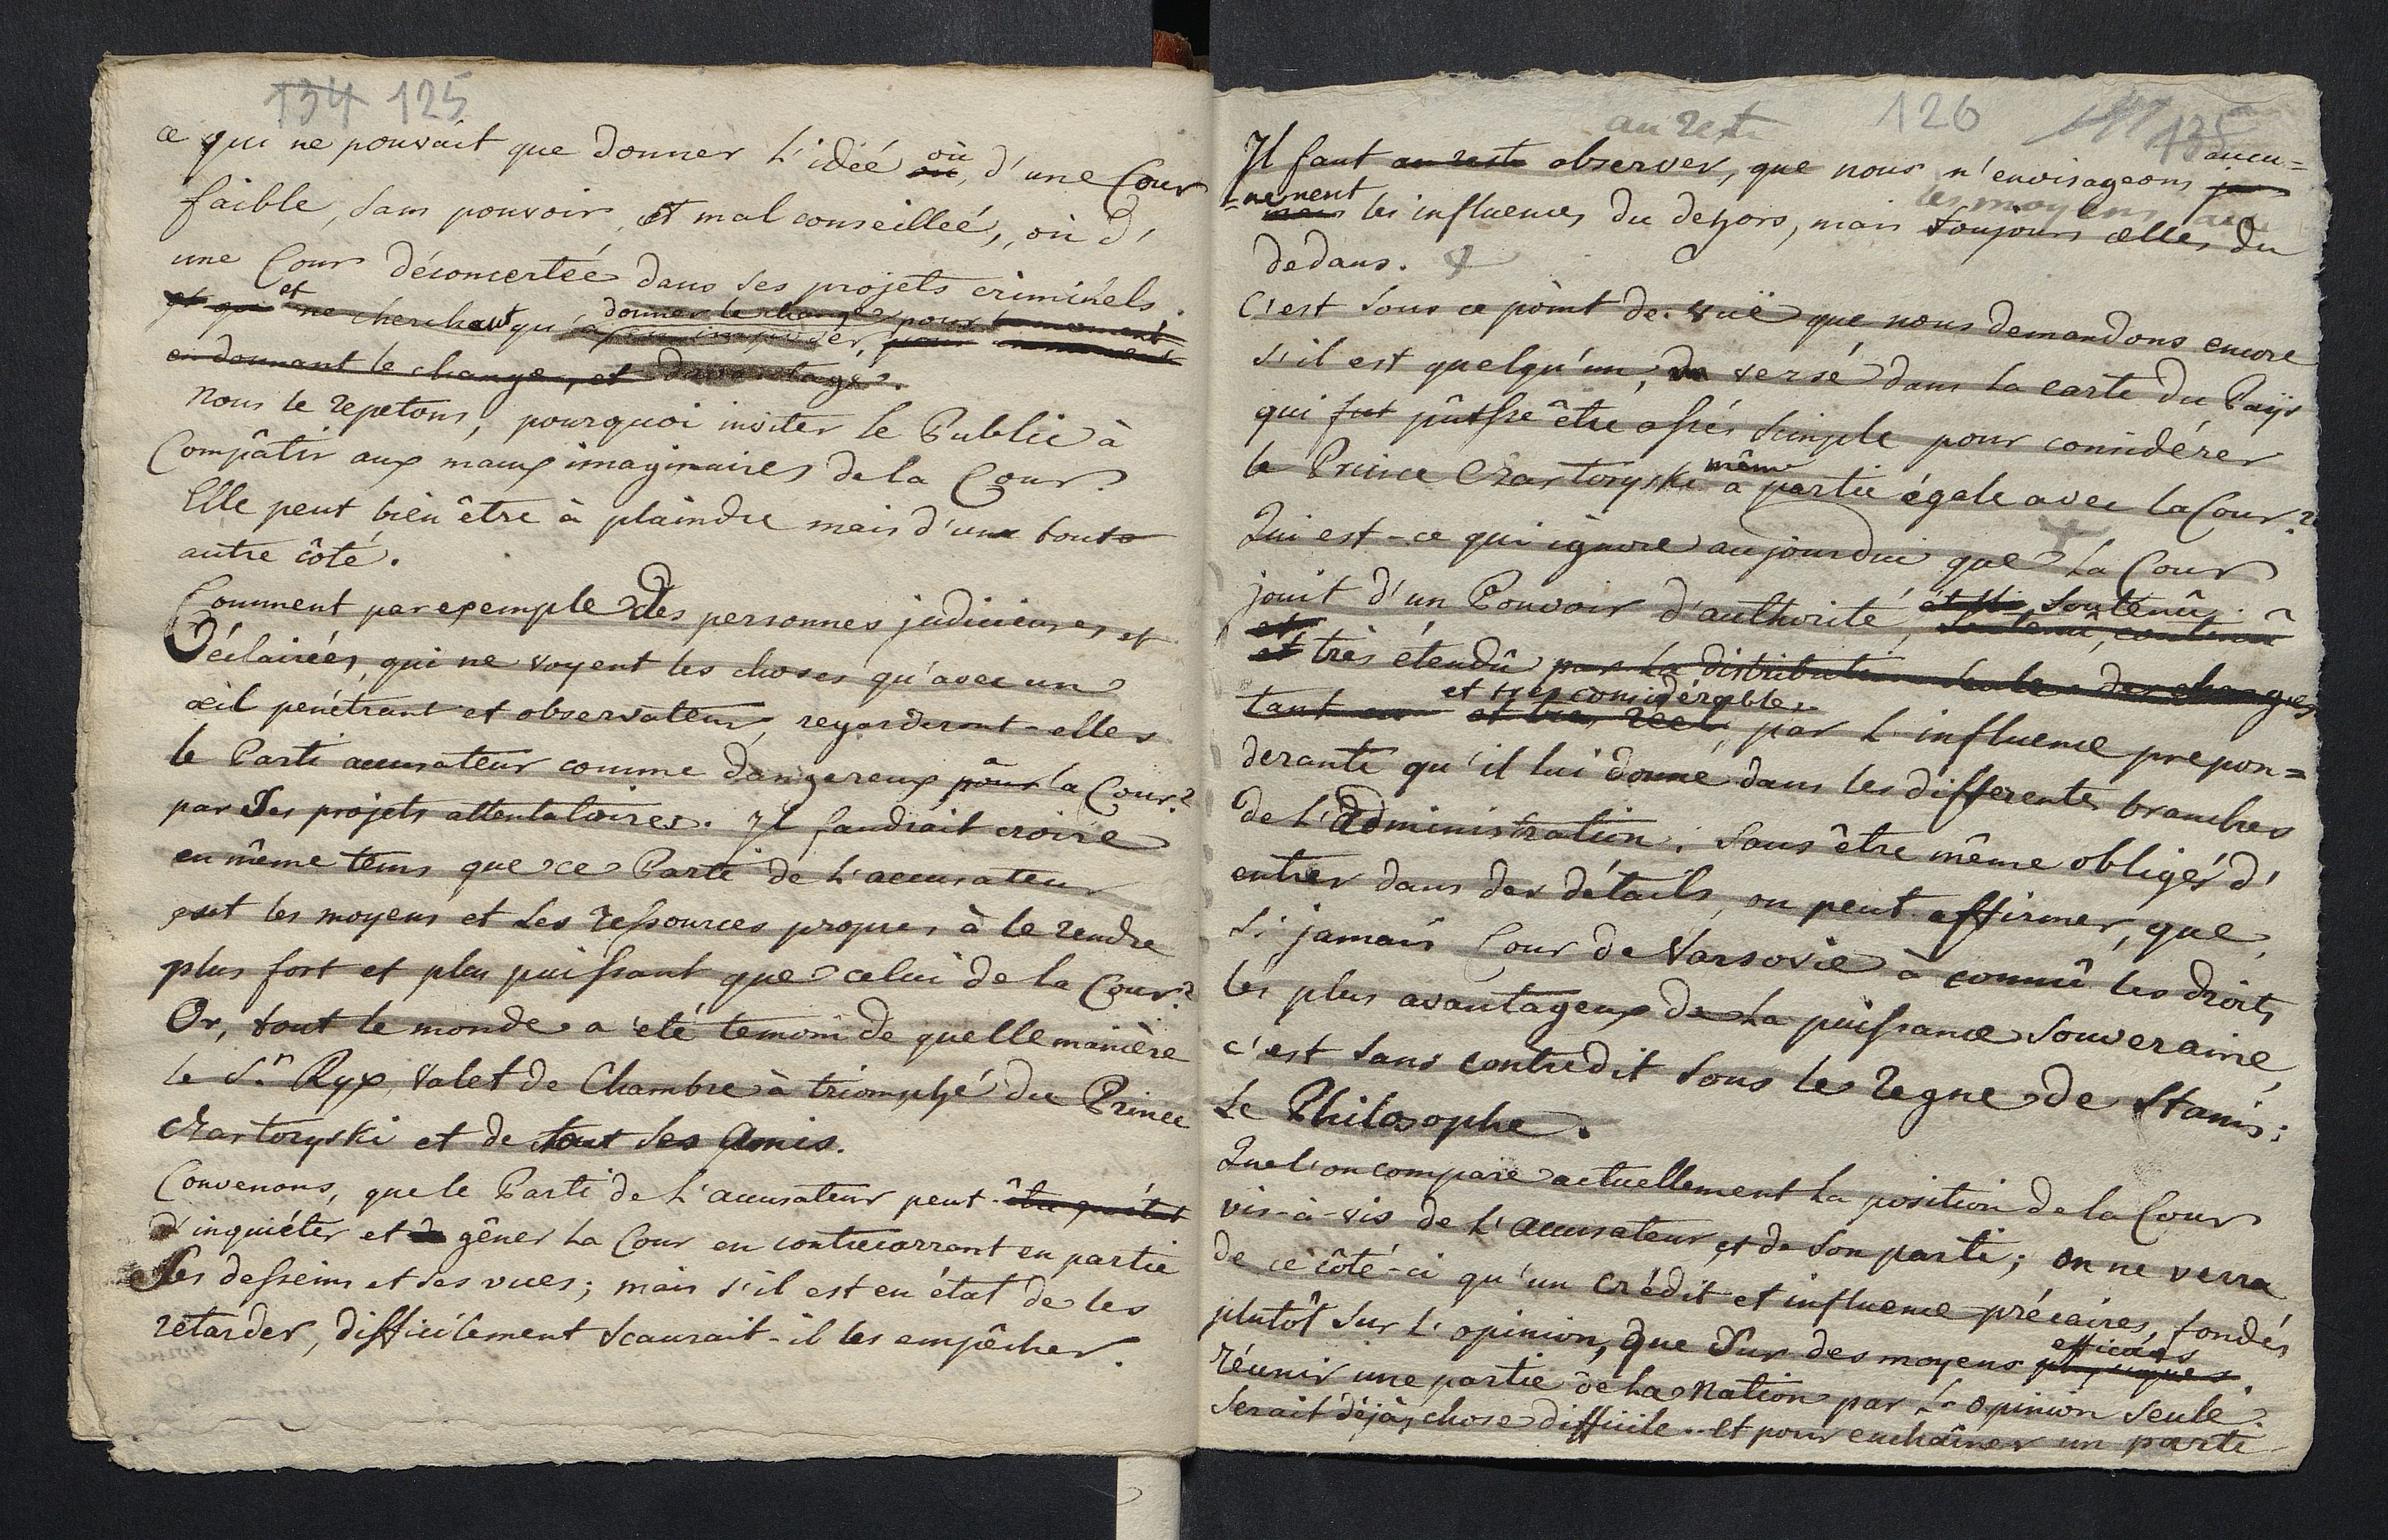 134 125
ce qui ne pouvait que donner l'idée ou où, d'une Cour
faible, sans pouvoir, et mal conseilleé, où d'
une Cour déconcerteé dans ses projets criminels,
et qui et ne cherchant qu'à donner le change pour le moment
en imposer, pour un moment
en donnant le change, et davantage.
Nous le repetons, pourquoi inviter le Public à
Compâtir aux maux imaginaires de la Cour?
Elle peut bien être à plaindre mais d'une toute
autre côté.
Comment par exemple des personnes judicieuses et
éclaireés, qui ne voyent les choses qu'avec un
œil penétrant et observateur, regarderont-elles
le Parti accusateur comme dangereux pour la Cour?
par Ses projets attentatoires. Il faudrait croire
en même tems que ce Parti de l'accusateur
eut les moyens et les ressources propres à le rendre
plus fort et plus puissant que celui de la Cour?
Or, tout le monde a eté temoin de quelle manière
le Sr. Ryx, Valet de Chambre à triomphé du Prince
Czartoryski et de tout ses Amis.
Convenons, que le Parti de l'accusateur peut être en état
d'inquiéter et de gêner la Cour en contrecarrant en partie
Ses desseins et ses vues; mais s'il est en état de les
retarder, difficilement scaurait-il les empêcher.
au reste 126 135
Il faut au reste observer, que nous n'envisageons ja aucu=
=nement mais les influences du dehors, mais toujours celles du
les moyens au
dedans.
C'est sous ce point de vuë que nous demandons encore
s'il est quelqu'un, de versé dans la carte du Païs
qui fut pûsse être assés simple pour considérer
le Prince Czartoryski même à partie égale avec la Cour?
Qui est-ce qui ignore aujourdui que la Cour
jouit d'un Pouvoir d'authorité, établi, soutenû,
soutenû, contenû
et très étendû par la distribution seule des charges
tant en et très réel et très considérable par l'influence prepon=
derante qu'il lui donne dans les differentes branches
de l'Administration. Sans être même obligé d'
entrer dans des détails, on peut affirmer, que
si jamais Cour de Varsovie à connû les droits
les plus avantageux de la puissance Souveraine,
c'est sans contredit sous le regne de Stanis:
le Philosophe.
Que l'on compare actuellement la position de la Cour
vis-à-vis de l'accusateur et de son parti; on ne verra
de ce côté-ci qu'un crédit et influence précaires, fondés
plutôt sur l'opinion, que sur des moyens physiques efficaces.
Réunir une partie de la Nation par l'opinion seule
serait déjà, chose difficile. Et pour enchaîner un parti